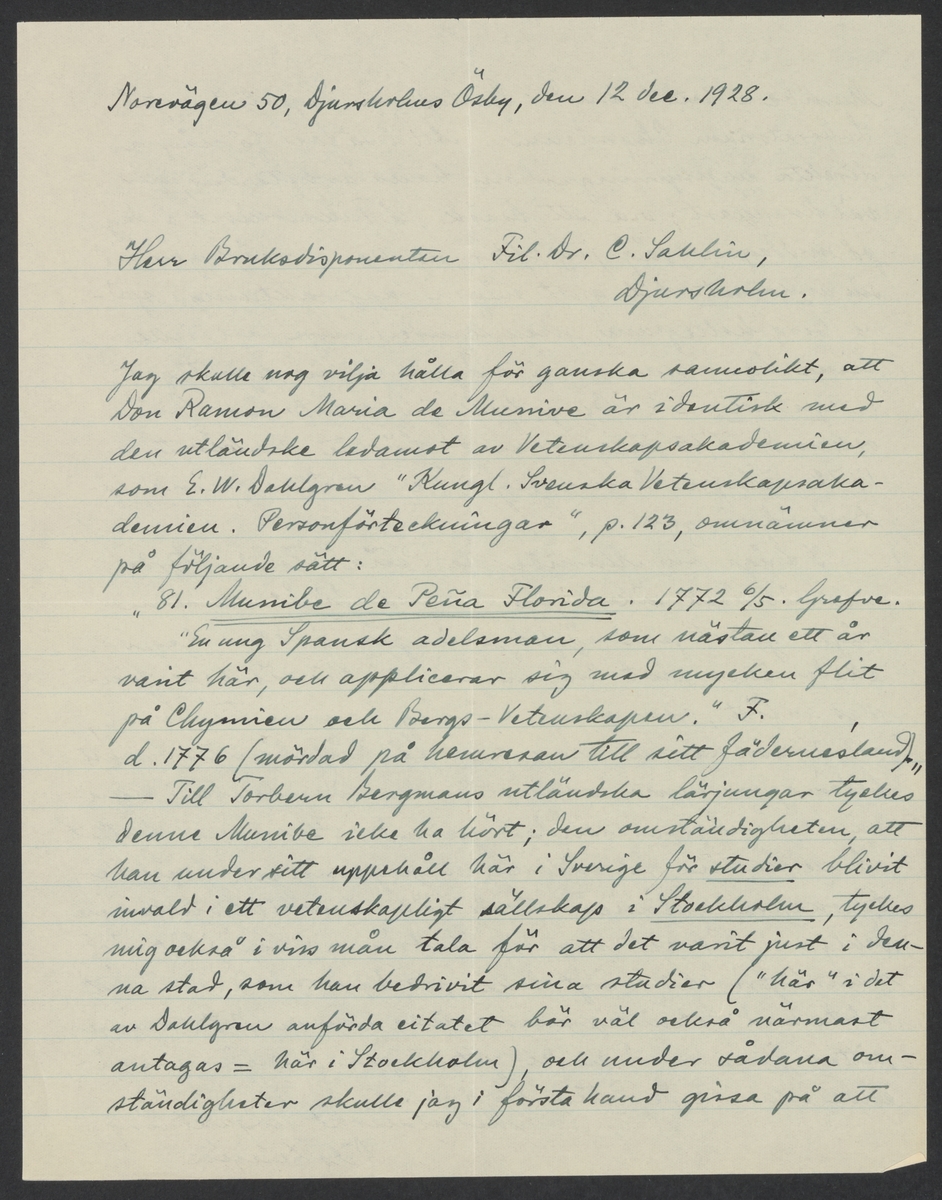 Norevägen 50, Djursholms Ösby, den 12 dec. 1928.
Herr Bruksdisponenten Fil. Dr. C. Sahlin,
Djursholm.
Jag skulle nog vilja hålla för ganska sannolikt, att
Don Ramon Maria de Munive är identisk med
den utländske ledamot av Vetenskapsakademien,
som E. W. Dahlgren "Kungl. Svenska Vetenskapsaka-
demien. Personförteckningar", p. 123, omnämner
på följande sätt:
"81. Munibe de Peña Florida. 1772 6/5. Grefve.
"En ung Spansk adelsman, som nästan ett år
varit här, och applicerar sig med mycken flit
på Chymien och Bergs-Vetenskapen." F.
d. 1776 (mördad på hemresan till sitt fädernesland)."
— Till Torbern Bergmans utländska lärjungar tyckes
denne Munibe icke ha hört; den omständigheten, att
han under sitt uppehåll här i Sverige för studier blivit
invald i ett vetenskapligt sällskap i Stockholm, tyckes
mig också i viss mån tala för att det varit just i den-
na stad, som han bedrivit sina studier ("här" i det
av Dahlgren anförda citatet bör väl också närmast
antagas = här i Stockholm), och under sådana om-
ständigheter skulle jag i första hand gissa på att